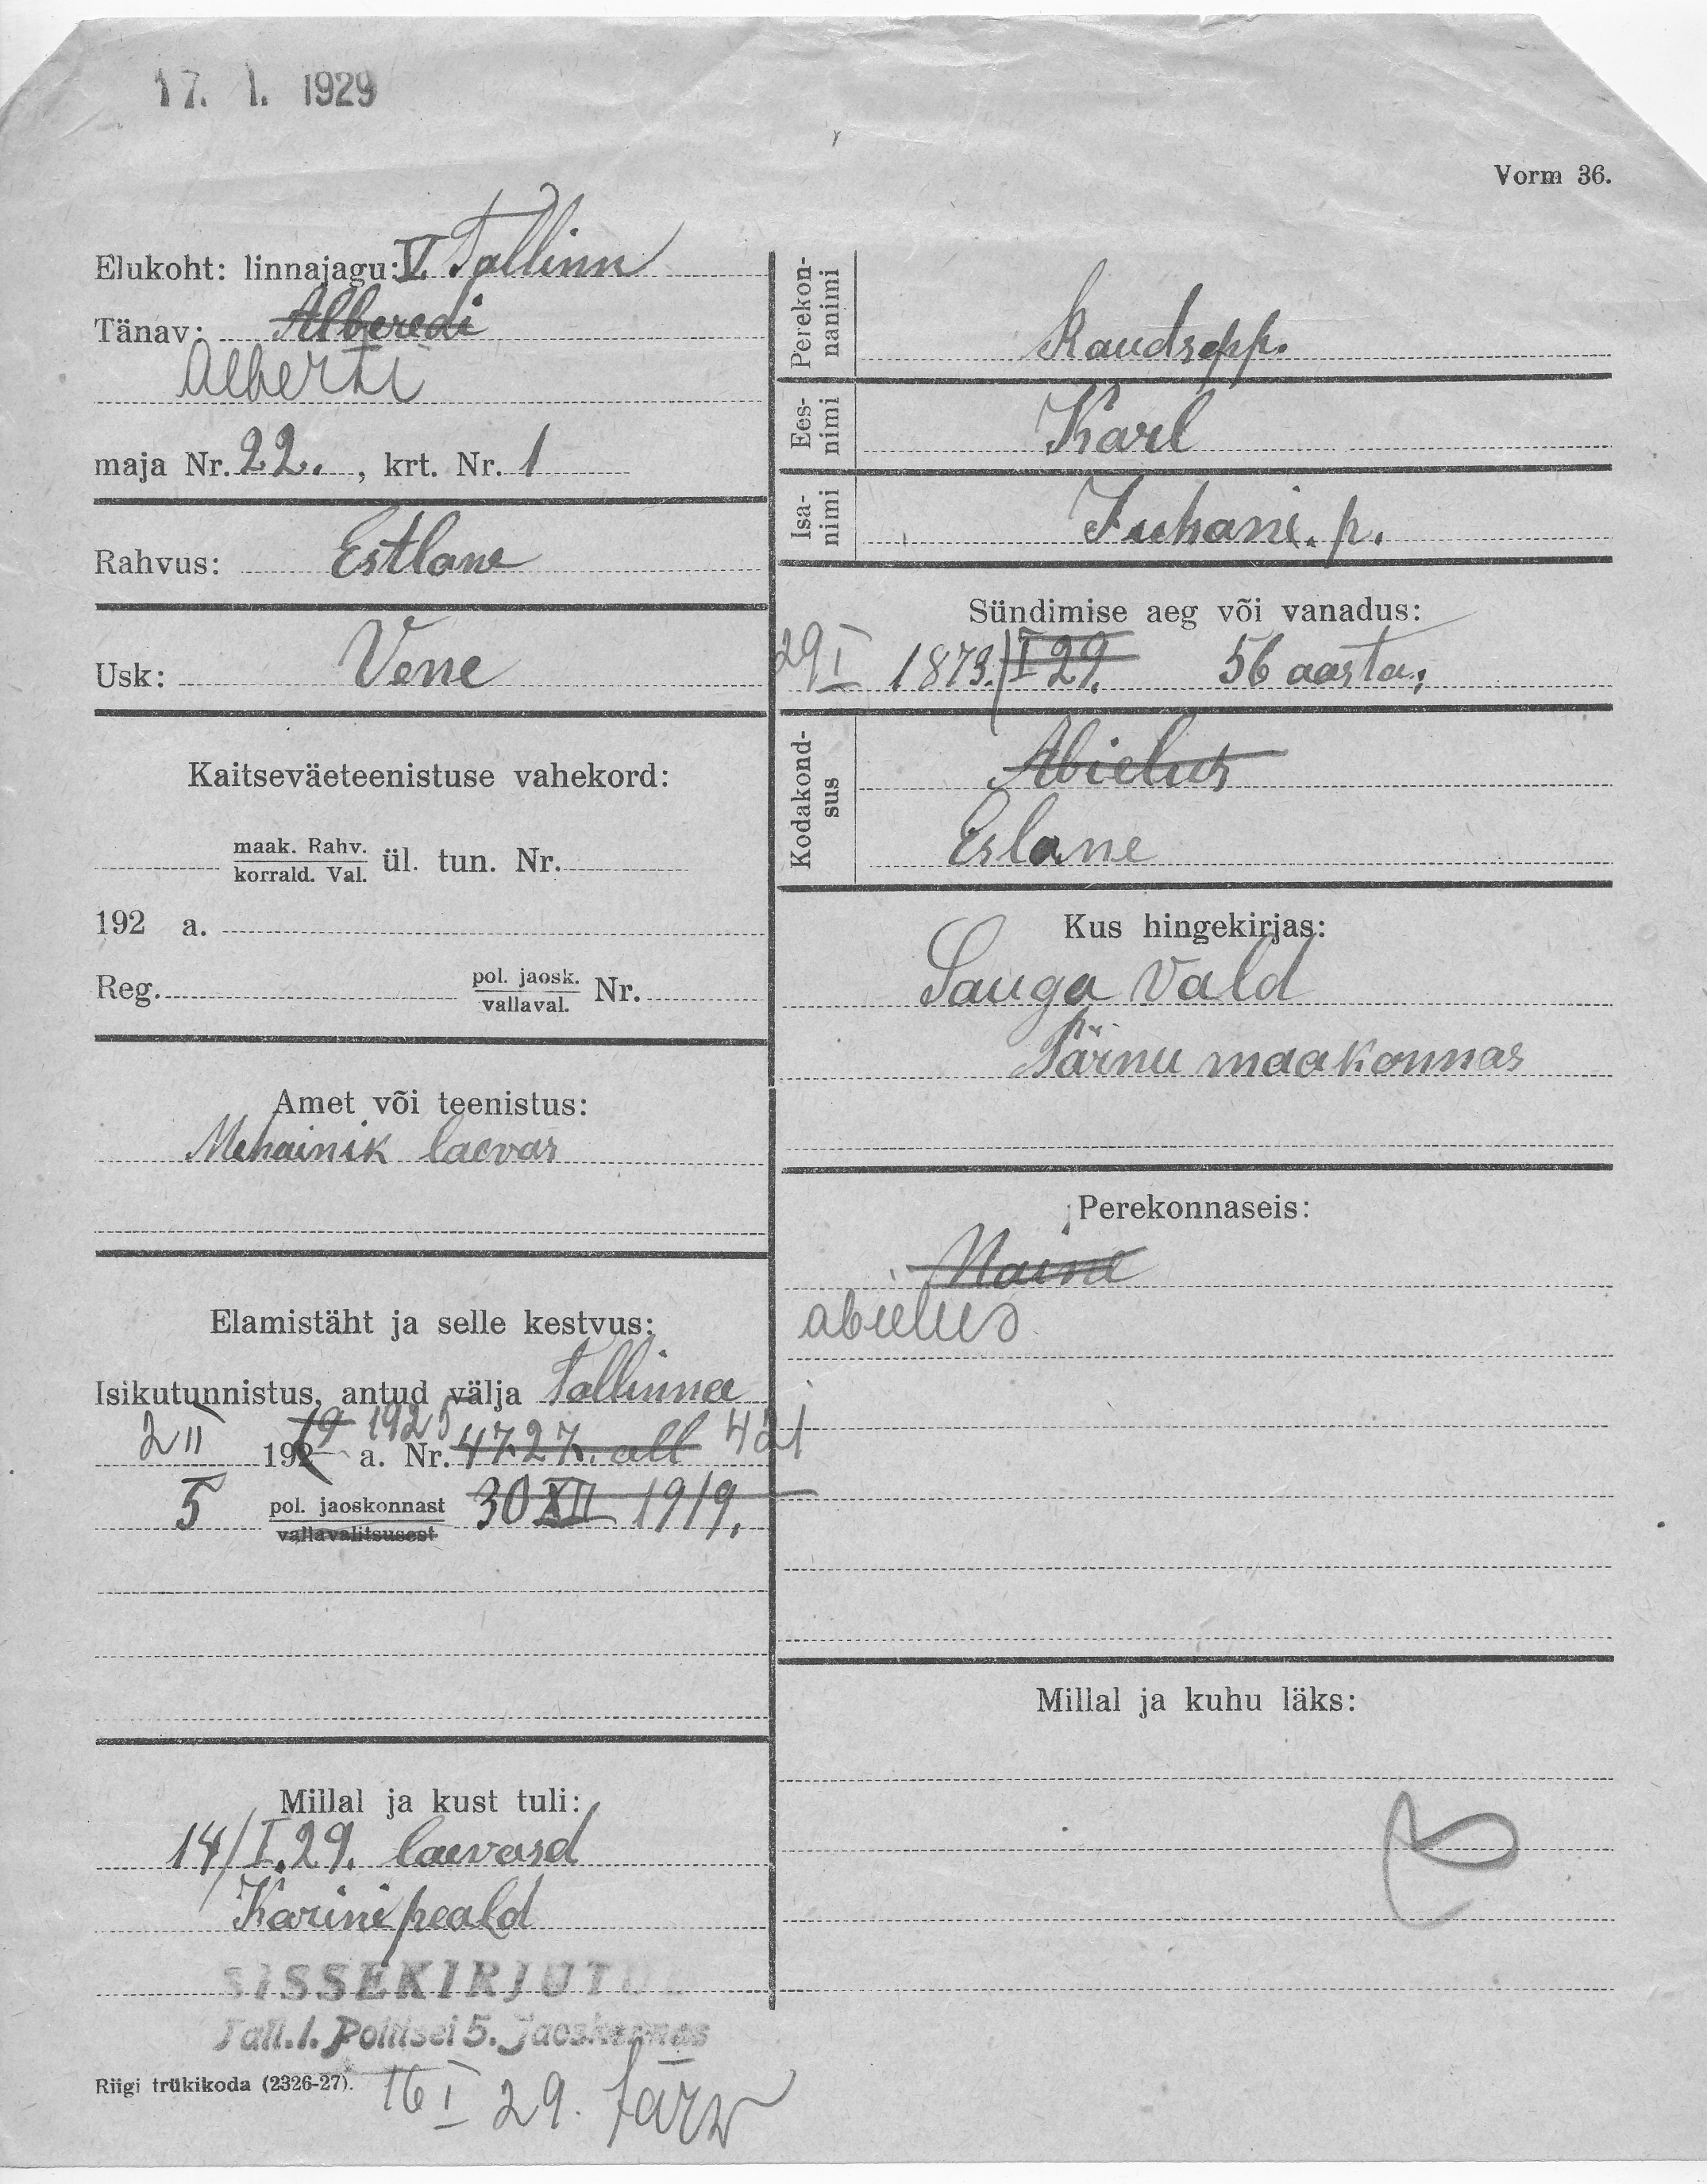 17. 1. 1929
Vorm 36.
Elukoht: linnajagu: V. Tallinn
Tänav: Alberedi
Alberti
maja Nr. 22. , krt. Nr. 1
Rahvus: Estlane
Usk: Vene
Kaitseväeteenistuse vahekord:
maak. Rahv.
korrald. Val. ül. tun. Nr.
192 a.
Reg. pol. jaosk.
vallaval. Nr.
Amet või teenistus:
Mehainik laevas
Elamistäht ja selle kestvus:
Isikutunnistus, antud välja Tallinna
2 II 192 19 1925 a. Nr. 4727. all 421
5 pol. jaoskonnast 30 XII 1919.
vallavalitsusest
Millal ja kust tuli:
14/I.29. laevasd
Karini peald
SISSEKIRJUTUD
Tall.l. Politsei 5. Jaoskonnas
Riigi trükikoda (2326-27).
16 I 29. Järv
Perekon-
nanimi
Raudsepp.
Ees-
nimi
Karl
Isa-
nimi
Juhani. p.
Sündimise aeg või vanadus:
29 I 1873./I 29. 56 aasta.
Kodakond-
sus
Abielus
Eslane
Kus hingekirjas:
Sauga Vald
Pärnu maakonnas
Perekonnaseis:
Naine
abielus
Millal ja kuhu läks: